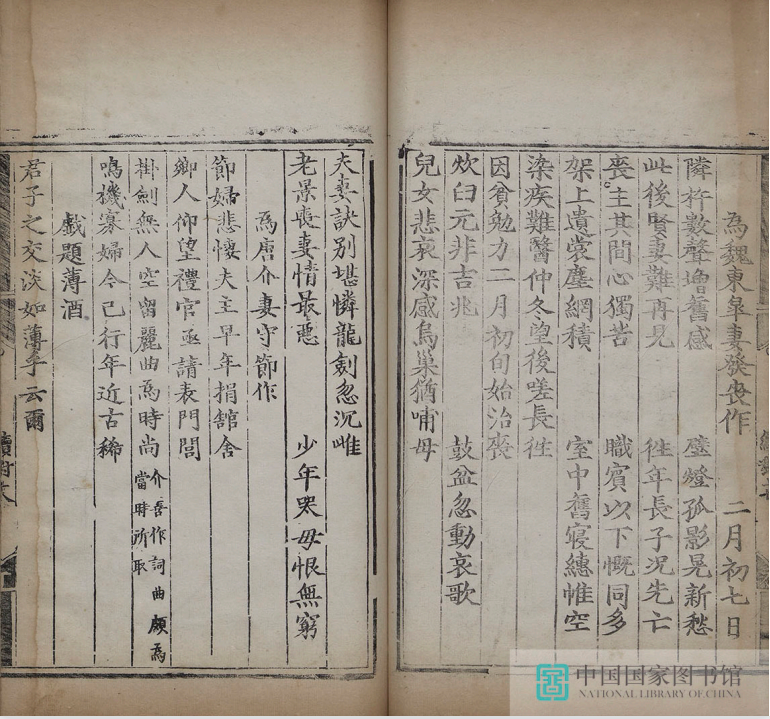 為魏東皐妻發喪作 二月初七日
隣杵數聲增舊感 壁燈孤影晃新愁
此後賢妻難再見 徃年長子況先亡
喪主其間心獨苦 職賓以下慨同多
架上遺裳塵網積 室中舊寢繐帷空
染疾難醫仲冬望後嗟長徃
因貧勉力二月初旬始治喪
炊臼元非吉兆 鼓盆忽動哀歌
兒女悲哀深感烏巢猶哺母
夫妻訣別堪憐龍劍忽沉雌
老景喪妻情最惡 少年哭母恨無窮
為唐介妻守節作
節婦悲懷夫主早年捐舘舍
鄉人仰望禮官亟請表門閭
掛劍無人空留麗曲為時尚 介善作詞曲頗為當時所取
鳴機寡婦今已行年近古稀
戲題薄酒
君子之交淡如薄乎云爾
中国国家图书馆
NATIONAL LIBRARY OF CHINA